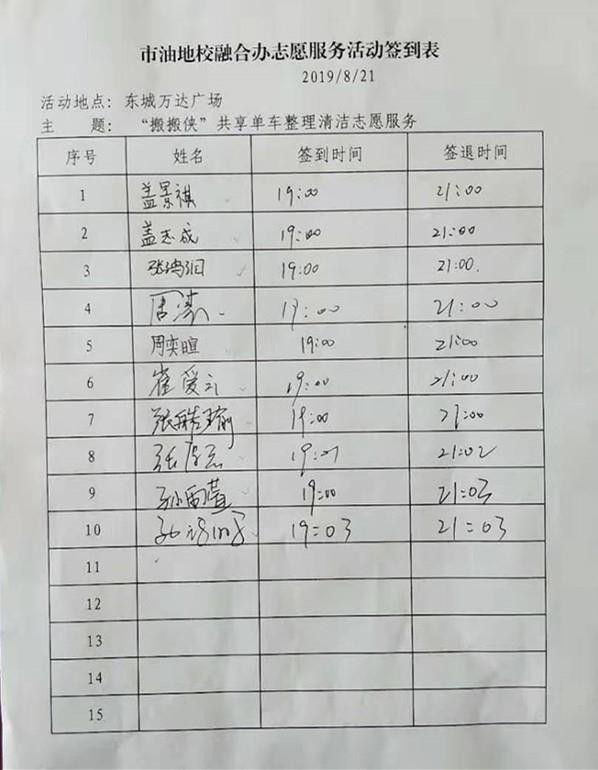 市油地校融合办志愿服务活动签到表
2019/8/21
活动地点：东城万达广场
主　　题：“搬搬侠”共享单车整理清洁志愿服务
序号 姓名 签到时间 签退时间
1 盖景祺 19:00 21:00
2 盖志成 19:00 21:00
3 张鸿汩 19:00 21:00.
4 周 19:00 21:00
5 周奕暄 19:00 21:00
6 崔爱 19:00 21:00
7 张 19:00 21:00
8 张 21:02
9 孙雷萱 19:00 21:03
10 19:03 21:03
11
12
13
14
15